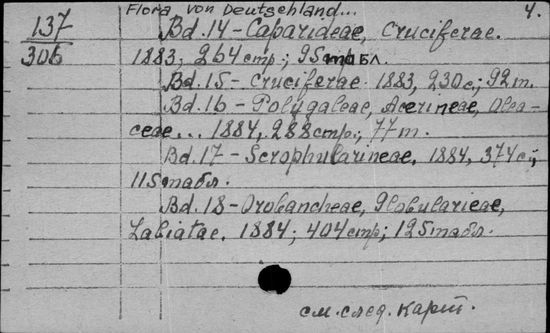 Flora von Deutschland... 4.
137 Bd. 14 - Caparideae, Cruciferae.
306 1883, 264 стр.; 95 табл.
Bd. 15 - Cruciferae 1883, 230 с.; 92 т.
Bd. 16 - Polygaleae, Acerineae, Olea-
ceae... 1884, 288 стр., 77 т.
Bd. 17 - Scrophularineae, 1884, 374 с.;
115 табл.
Bd. 18 - Orobancheae, Globularieae,
Labiatae. 1884; 404 стр; 125 табл.
см. след. карт.